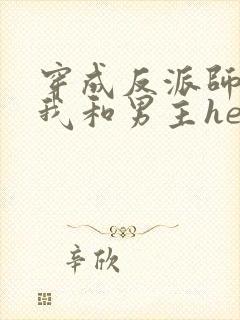 穿成反派师
我和男主he
辛欣